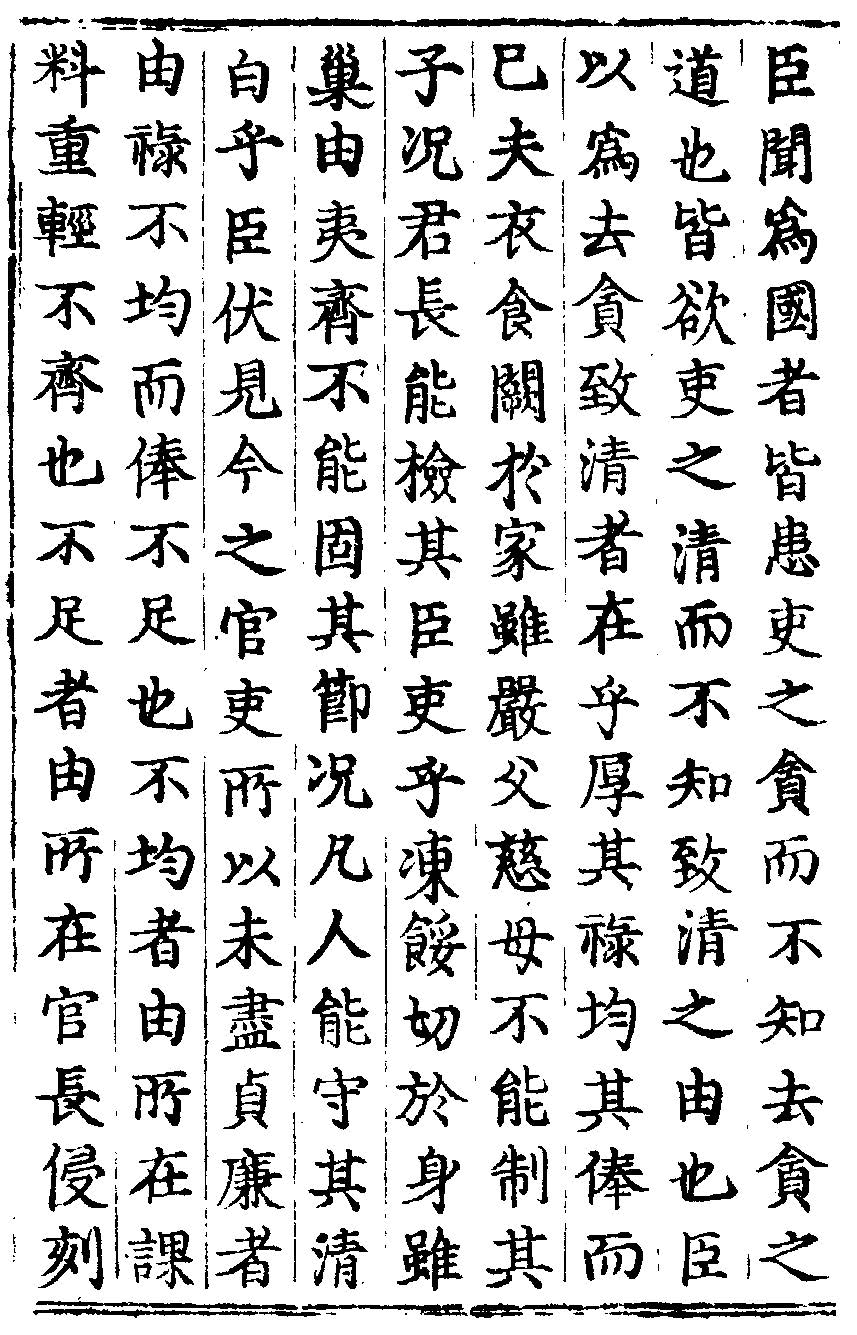 臣聞爲國者皆患吏之貪而不知去貪之
道也皆欲吏之清而不知致清之由也臣
以爲去貪致清者在乎厚其祿均其俸而
已夫衣食闕於家雖嚴父慈母不能制其
子况君長能檢其臣吏乎凍餒切於身雖
巢由夷齊不能固其節况凡人能守其清
白乎臣伏見今之官吏所以未盡貞廉者
由祿不均而俸不足也不均者由所在課
料重輕不齊也不足者由所在官長侵刻